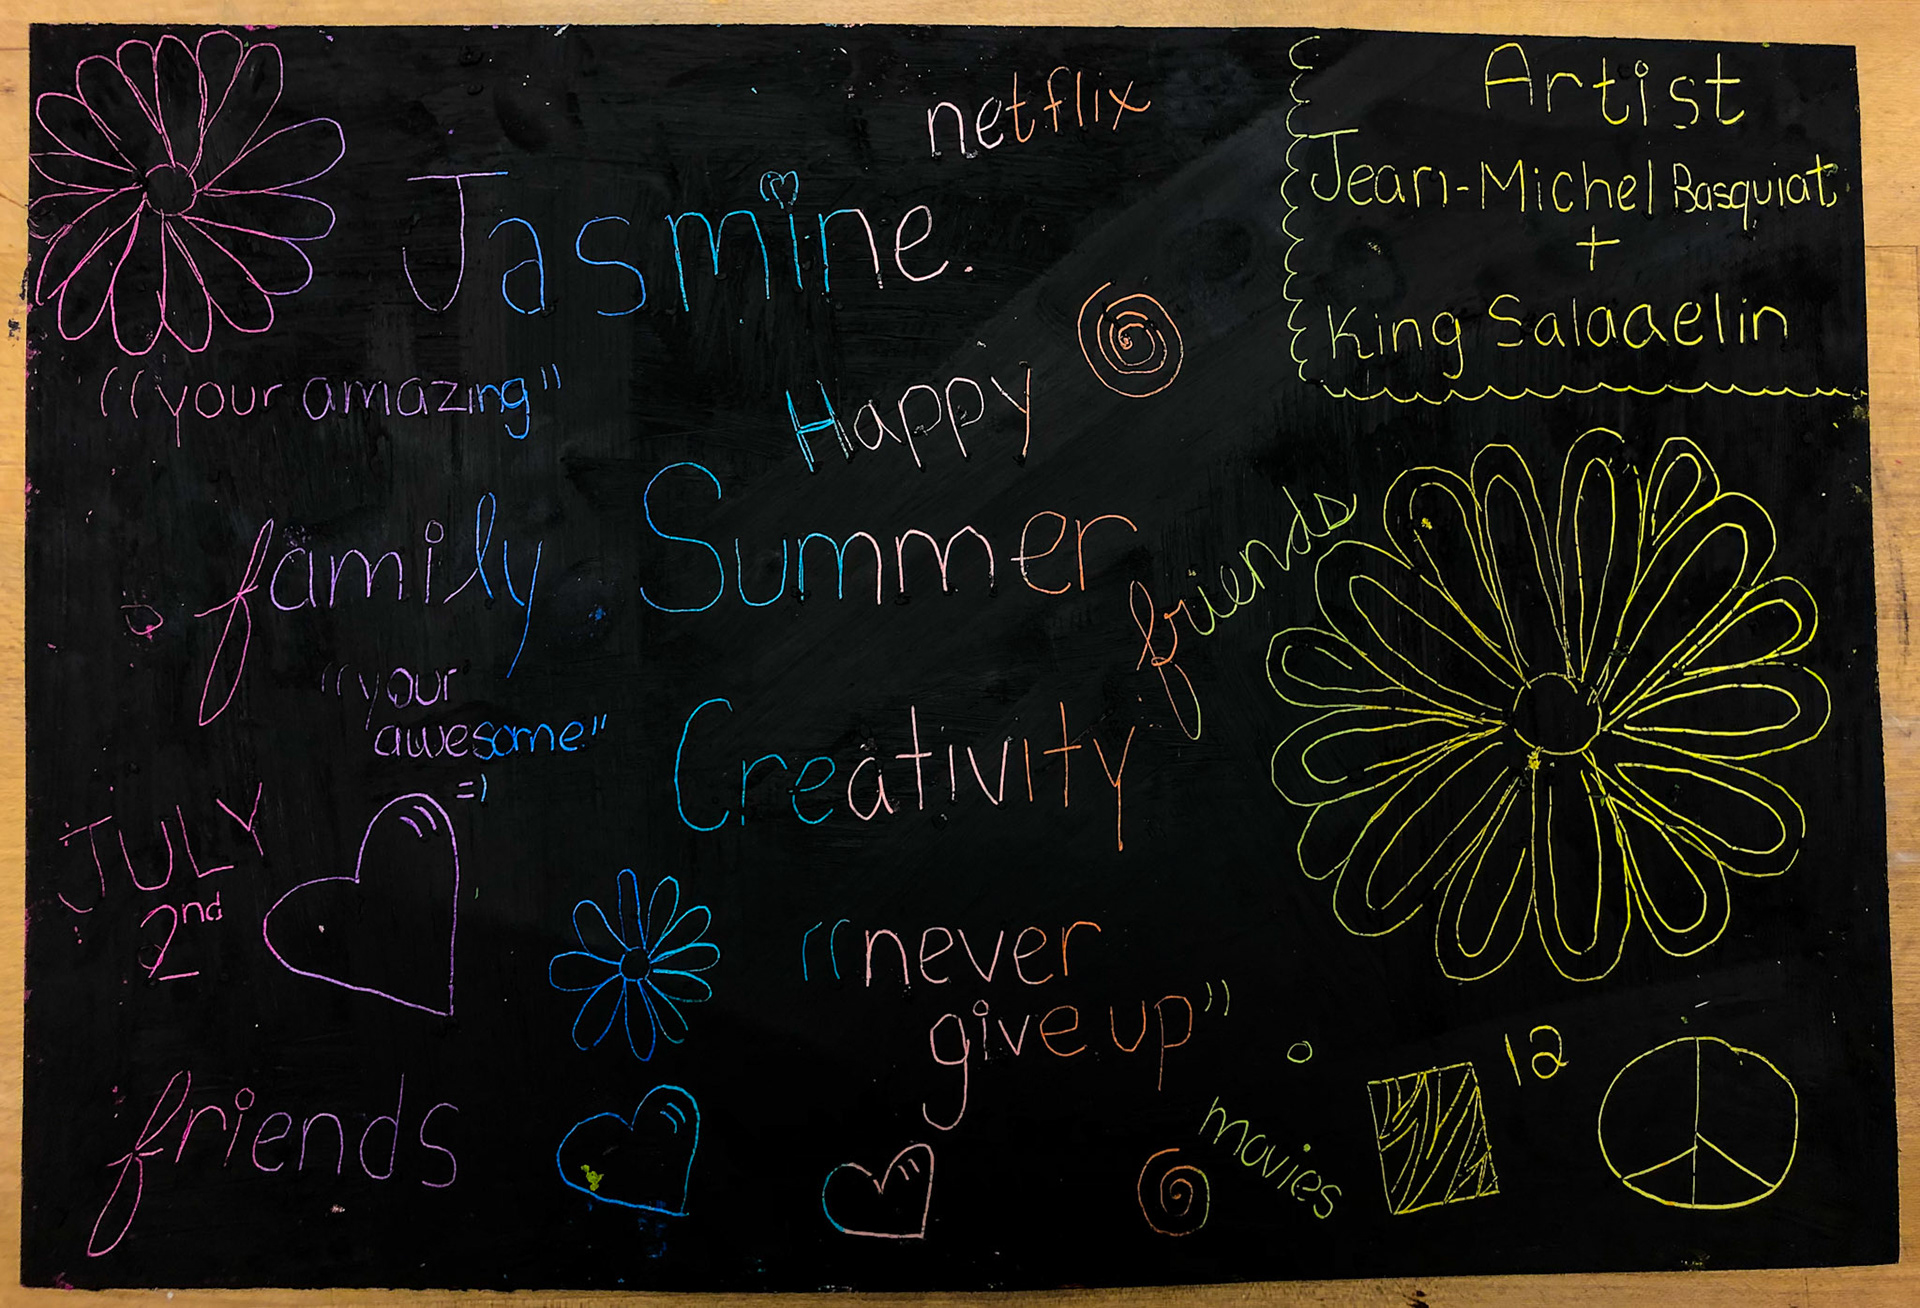 netflix
Artist
Jean-Michel Basquiat
+
King Salaaelin
Jasmine.
"your amazing"
Happy
Summer
family
friends
"your
awesome"
=)
Creativity
JULY
2nd
"never
give up"
12
movies
friends